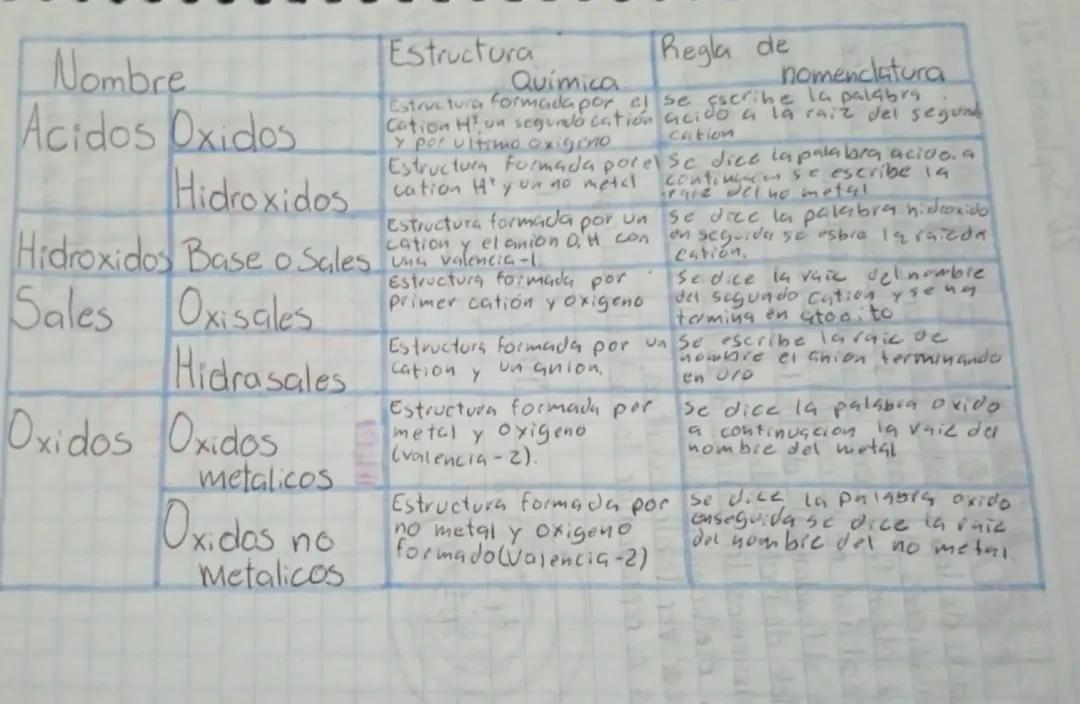 Nombre
Estructura
Química
Regla de
nomenclatura
Acidos
Oxidos
Estructura formada por el
cation H⁺ un segundo cation
y por ultimo oxigeno
se escribe la palabra
acido a la raiz del segund
cation
Hidroxidos
Estructura formada por el
cation H⁺ y un no metal
se dice la palabra acido. a
continuacion se escribe la
raiz del no metal
Hidroxidos
Base o Sales
Estructura formada por un
cation y el anion O,H con
una valencia-1
se dice la palabra hidroxido
en seguida se esbia la raiz dn
cation.
Sales
Oxisales
Estructura formada por
primer catión y oxigeno
se dice la raiz del nombre
del segundo cation y se ha
termina en ato o ito
Hidrasales
Estructura formada por un
cation y un anion.
se escribe la raiz de
nombre el anion terminando
en uro
Oxidos
Oxidos
metalicos
Estructura formada por
metal y oxigeno
(valencia-2).
se dice la palabra oxido
a continuacion la raiz del
nombre del metal
Oxidos no
metalicos
Estructura formada por
no metal y oxigeno
formado(valencia-2)
se dice la palabra oxido
enseguida se dice la raiz
del nombre del no metal.